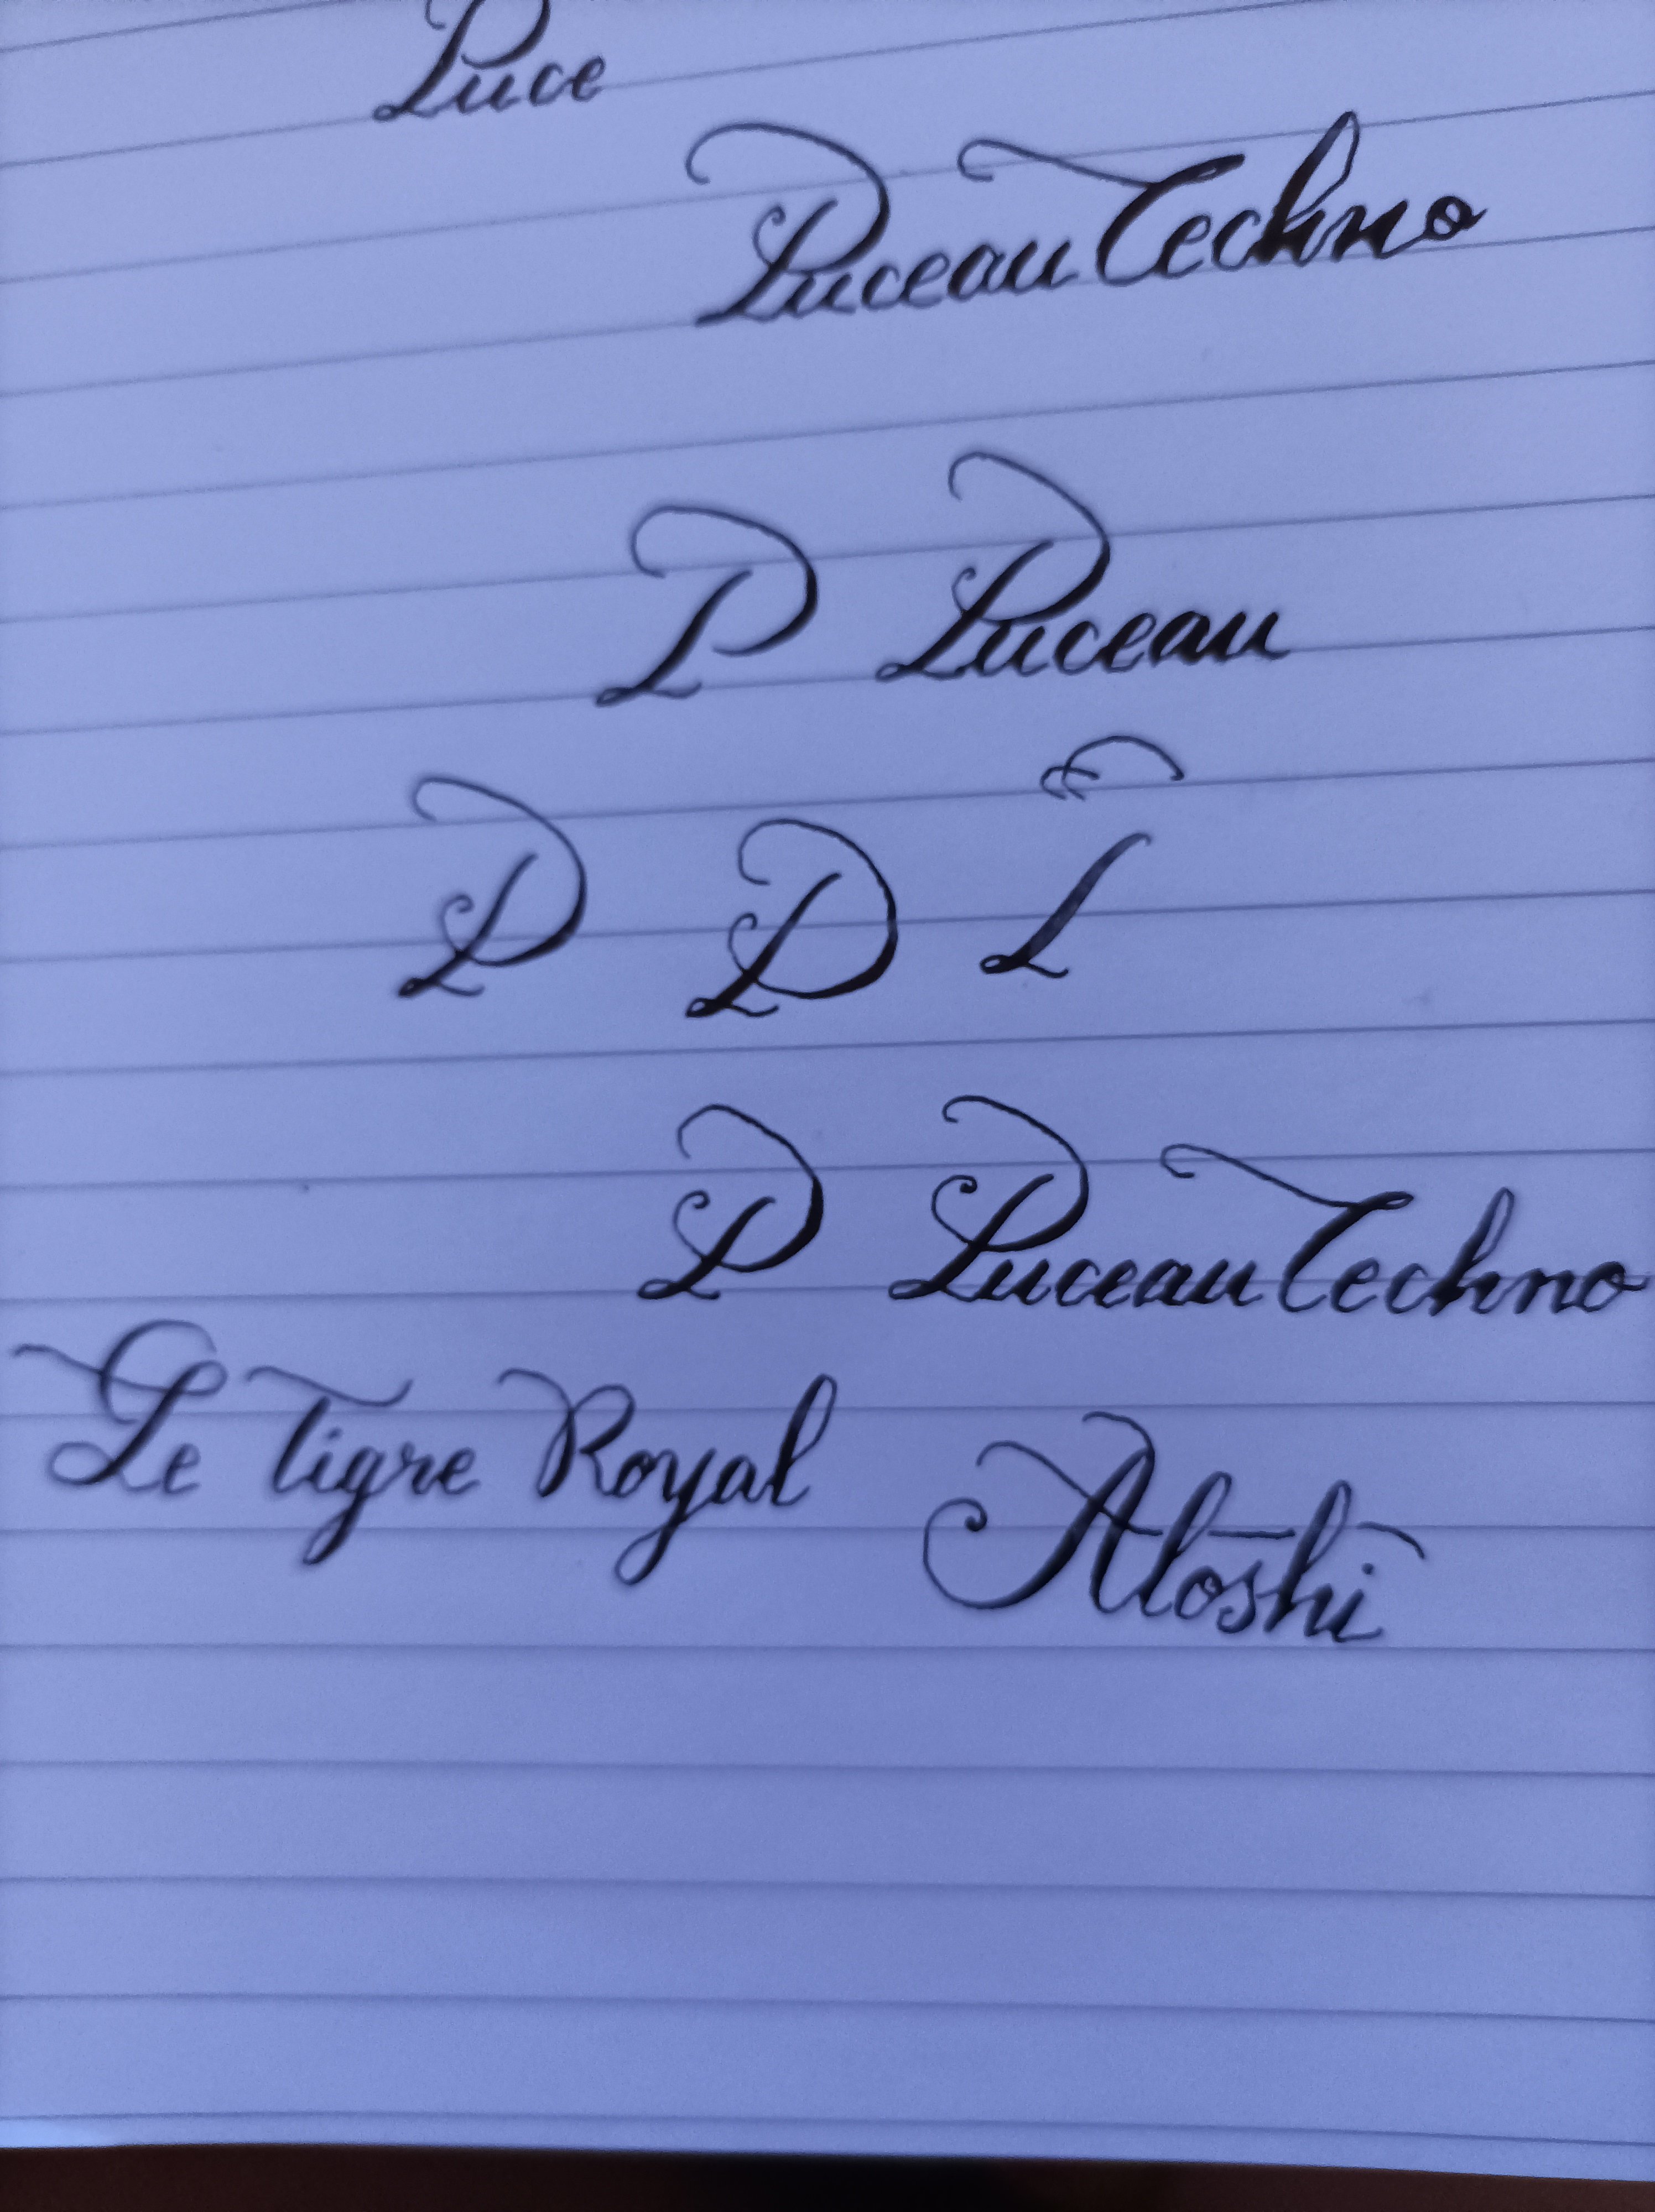 Puce
Puceau Techno
P Puceau
P P
P Puceau Techno
Le Tigre Royal
Aloshi